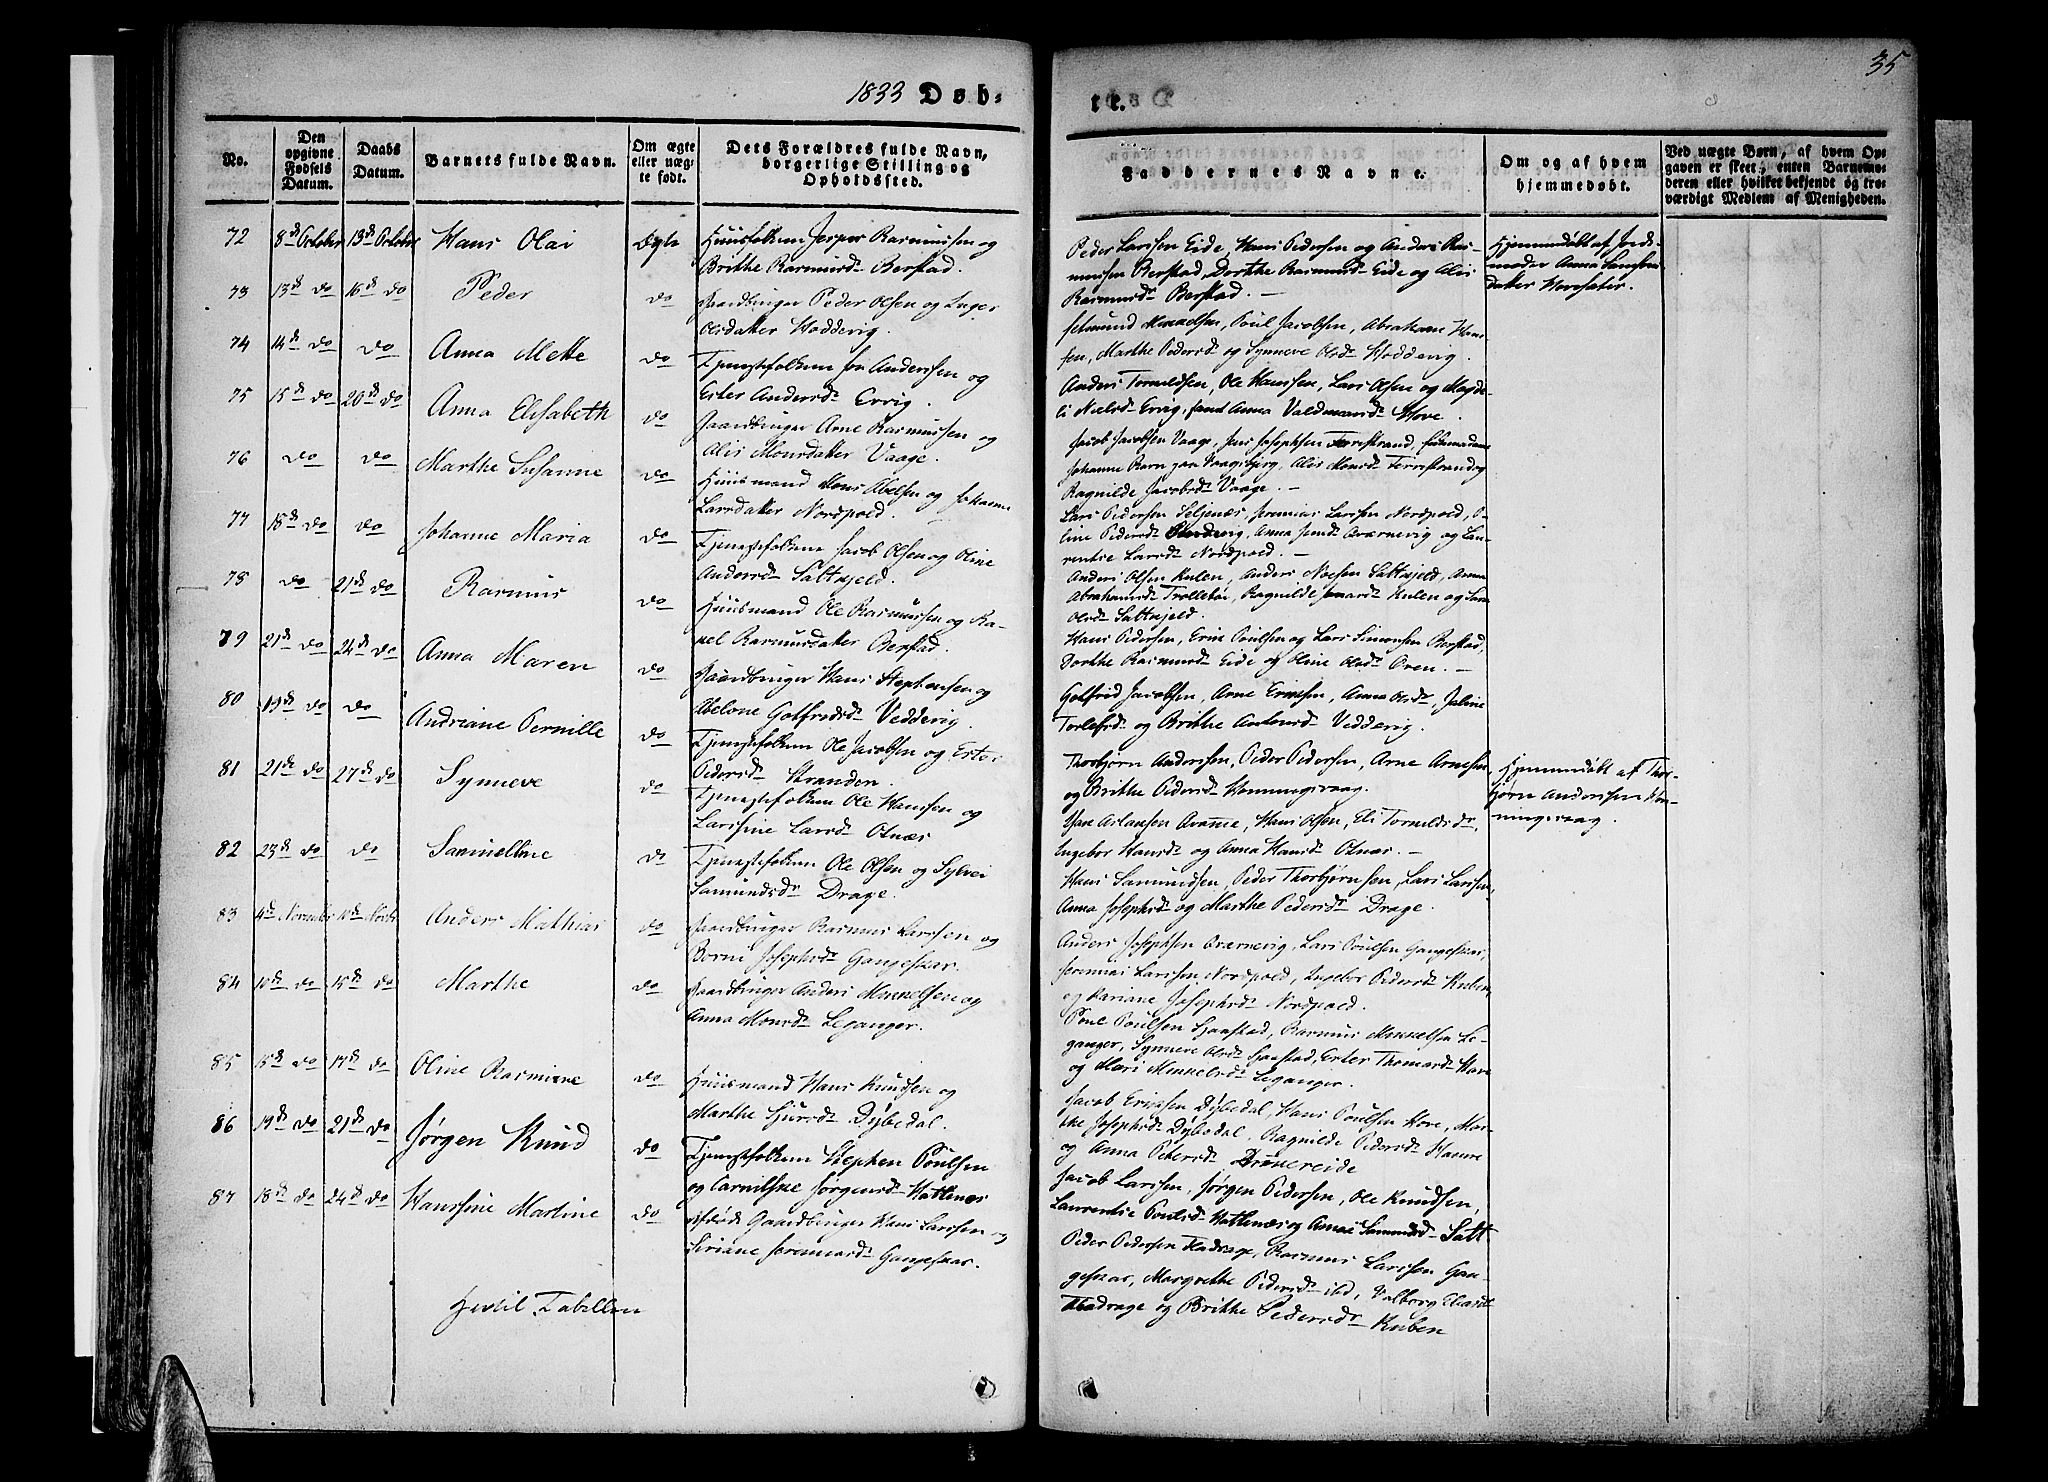 35
1833 Døb-
te.
No.
Den opgivne Fødsels Datum.
Daabs Datum.
Barnets fulde Navn.
Om ægte eller uægte født.
Dets Forældres fulde Navn, borgerlige Stilling og Opholdssted.
Faddernes Navne.
Om og af hvem hjemmedøbt.
Ved uægte Børn, af hvem Opgaven er skeet; enten Barnemoderen eller hvilket bekjendt og troværdigt Medlem af Menigheden.
72 8de October 13de October Hans Olai Ægte Huusfolkene Jesper Rasmussen og
Brithe Rasmusdr Berstad.
Peder Larssen Eide, Hans Pedersen og Anders Ras-
mussen Berstad, Dorthe Rasmusdr Eide og Alis
Rasmusdr Berstad. —
Hjemmedøbt af Jorde-
moder Anna
datter Hovesæter.
73 13de do 16de do Peder do Gaardbruger Peder Olsen og Inger
Olsdatter Hoddevig.
Mikkelsen, Poul Jacobsen, Abraham Han-
sen, Marthe Pedersdr og Synneve Olsdr Hoddevig.
74 14de do do Anna Mette do Tjenestefolkene Andersen og
Ester Andersdr Ervig.
Anders Torvildsen, Ole Hanssen, Lars Olsen og Magde-
li Nielsdr Ervig, samt Anna Valdmansdr Hove.
75 15de do 20de do Anna Elisabeth do Gaardbruger Arne Rasmussen og
Alis Monsdatter Vaage.
Jacob Jacobsen Vaage, Jens Josephsen
Johanne Ravn paa Vaagsbjerg, Alis Monsdr
Ragnilde Jacobsdr Vaage. —
76 do do Marthe Susanne do Huusmand Mons Abelsen og Johanne
Larsdatter Nordpold.
Lars Pedersen Seljenæs, Jeremias Larssen Nordpold, O-
line Pedersdr Anna Jensdr Aarnevig og Lau-
rentse Larsdr Nordpold. —
77 18de do do Johanne Maria do Tjenestefolkene Jacob Olsen og Oline
Andersdr Saltkjeld.
Anders Olsen Kulen, Anders Saltkjeld, Anna
Abrahamsdr Trolleboe, Ragnilde Kulen og
Olsdr Saltkjeld.
78 do 21de do Rasmus do Huusmand Ole Rasmussen og Ra-
kel Rasmusdatter Berstad.
Hans Pedersen, Erik Poulsen og Lars Simonsen Berstad,
Dorthe Rasmusdr Eide og Oline Olsdr Oren. —
79 21de do 24de do Anna Maren do Gaardbruger Hans Stephensen og
Abelone Gotfredsdr Vedvig.
Gotfred Jacobsen, Arne Ericksen, Anna Olsdr, Jaline
Torlefsdr og Brithe Antonsdr Vedvig.
80 19de do do Andriane Pernille do Tjenestefolkene Ole Jacobsen og Ester
Pedersdr Stranden.
Thorbjørn Andersen, Peder Pedersen, Arne Arnesen,
og Brithe Pedersdr Honningsvaag.
Hjemmedøbt af Thor-
bjørn Andersen Hon-
ningsvaag.
81 21de do 27de do Synneve do Tjenestefolkene Ole Hanssen og
Larssine Larsdr Otnæs
Aslaksen Hans Olsen, Eli Torvildsdr,
Ingebor Hansdr og Anna Hansdr Otnæs. —
82 23de do do Samueline do Tjenestefolkene Ole Olsen og Sylvei
Samundsdr Drage.
Hans Samundsen, Peder Thorbjørnsen, Lars Larssen,
Anna Josephsdr og Marthe Pedersdr Drage.
83 4de November 10de Novbr Anders Mathias do Gaardbruger Rasmus Larssen og
Josephsdr Gangeskar.
Anders Josephsen Aarnevig, Lars Poulsen Gangeskar,
Jeremias Larssen Nordpold, Ingebor Pedersdr Kuben,
og Josephsdr Nordpold.
84 10de do 15de do Marthe do Gaardbruger Anders Mikkelsen og
Anna Monsdr Leganger.
Poul Poulsen Sjaastad, Rasmus Mikkelsen Le-
ganger, Synneve Olsdr Sjaastad, Ester Thomasdr Hove
og Mari Mikkelsdr Leganger.
85 15de do 17de do Oline Rasmine do Huusmand Hans Knudsen og
Marthe Sjursdr Dybedal.
Jacob Ericksen Dybedal, Hans Poulsen Hove, Mar-
the Josephsdr Dybedal, Ragnilde Pedersdr
og Anna Petersdr
86 19de do 21de do Jørgen Knud do Tjenestefolkene Stephen Poulsen
og Jørgensdr Hatlenæs
Jacob Larssen, Jørgen Pedersen, Ole Knudsen,
Laurentse Poulsdr Hatlenæs og Anna Samundsdr Salt
87 18de do 24de do Hanssine Martine do Gaardbruger Hans Larssen og
Siriane Jeremiasdr Gangeskar.
Peder Pedersen Fladrage, Rasmus Larssen Gan-
geskar, Margrethe Pedersdr ibd, Valborg
Fladrage og Brithe Pedersdr Kuben
Hertil Tabellen